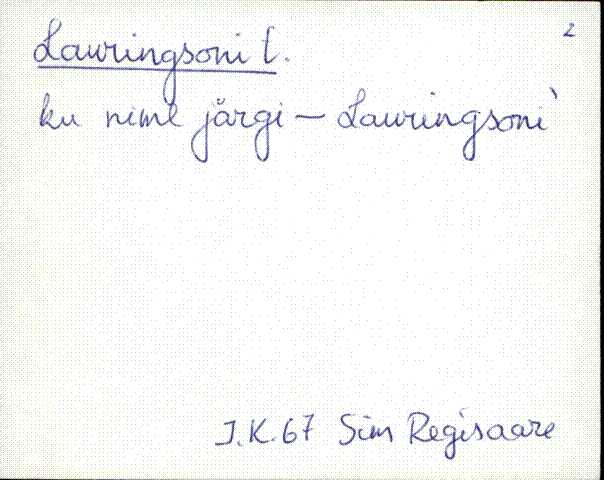 2
Lauringsoni t.
ku nime järgi – Lauringsoni`
J.K. 67 Sim Regisaare